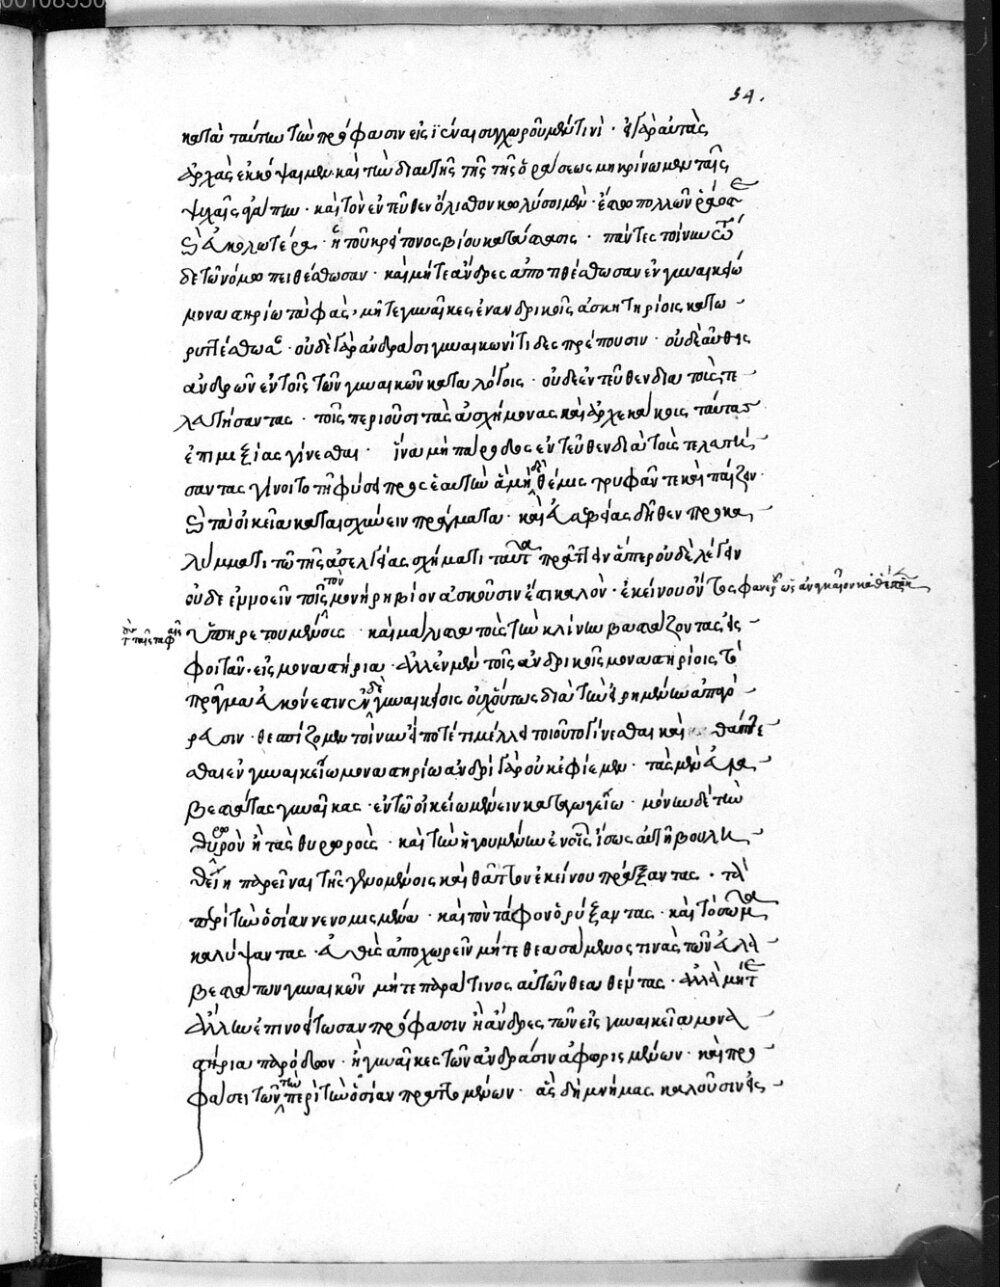 54.
κατὰ ταύτην τὴν πρόφασιν εἰσϊέναι συγχωροῦμέν τινι · εἰ γὰρ αὐτὰς
ἀρχὰς ἐκκόψαιμεν καὶ τὴν δι αὐτῆς τῆς τῆς ὁράσεως μὴ κρίνωμεν ταῖς
ψυχαῖς · καὶ τὸν ἐντεῦθεν ὄλισθον κωλύσοιμεν ·
ἡ τοῦ κρείττονος βίου κατάστασις · πάντες τοίνυν
δε τῷ νόμῳ πειθέσθωσαν · καὶ μήτε ἄνδρες ἀποτιθέσθωσαν ἐν γυναικείῳ
μοναστηρίῳ ταφὰς, μήτε γυναῖκες ἐν ἀνδρικοῖς ἀσκητηρίοις κατω
ρυττέσθωσαν · οὐδὲ γὰρ ἀνδράσι γυναικωνίτιδες πρέπουσιν · οὐδὲ αὖθις
ἀνδρῶν ἐν τοῖς τῶν γυναικῶν καταλόγοις · οὐδε ἐντεῦθεν δια τοὺς τε
λευτήσαντας · τοῖς περιοῦσι τὰς ἀσχήμονας καὶ ἀρχεκάκους ταύτας
ἐπιμιξίας γίνεσθαι · ἵνα μὴ πάροδος ἐντεῦθεν διὰ τοὺς τελευτή
σαντας γίνοιτο τῇ φύσει πρὸς ἑαυτὴν ἃ μὴ δὲ θέμις τρυφᾶν τε καὶ παίζειν
τὰ οἰκεῖα καταισχύνειν πράγματα · καὶ εὐλαβείας δῆθεν προκα
λύμματι τῷ τῆς ἀσελγείας σχήματι ταῦτα πράττειν ἅπερ οὐδὲ λέγειν
οὐδε ἐννοεῖν τοῖς τὸν μονήρη βίον ἀσκοῦσιν ἔστι καλὸν · ἐκείνου ὄντος φανεροῦ ὡς ἀναγκαῖον καθέστηκε
ταῖς ταφαῖς
ὑπηρετουμένοις καὶ μάλιστα τοὺς τὴν κλίνην βαστάζοντας εἰς
φοιτᾶν · εἰς μοναστήρια · ἀλλ ἐν μὲν τοῖς ἀνδρικοῖς μοναστηρίοις τὸ
πρᾶγμα ἀκόνεστιν ἐν δὲ γυναικείοις οὐχ οὕτως διὰ τὴν εἰρημένην ἀπαρ
ρασιν · θεσπίζομεν τοίνυν εἴποτέ τι μέλλει τοιοῦτο γίνεσθαι καὶ θάπτε
σθαι ἐν γυναικείῳ μοναστηρίῳ ἀνδρὶ γὰρ οὐκ ἐφίεμεν · τὰς μὲν εὐλα
βεστάτας γυναῖκας · ἐν τῷ οἰκείῳ μένειν καταγωγείῳ · μόνην δὲ τὴν
θυρωρὸν ἢ τὰς θυρωροὺς · καὶ τὴν ἡγουμένην ἐν οἷς ἴσως αὐτὴ βουλη
θείη παρεῖναι τῆς γενομένοις καὶ θᾶττον ἐκείνου πράξαντας · τὰ
περὶ τὴν ὁσίαν νενομισμένα · καὶ τὸν τάφον ὀρύξαντας · καὶ τὸ σῶμα
καλύψαντας · εὐθὺς ἀποχωρεῖν μήτε θεασαμένους τινας τῶν εὐλα
βεστάτων γυναικῶν μήτε παρά τινος αὐτῶν θεαθέντας · ἀλλὰ μήτε
ἄλλην ἐπινοείτωσαν πρόφασιν ἢ ἄνδρες τῶν εἰς γυναικεῖα μονα
στήρια παρόδων · ἢ γυναῖκες τῶν ἀνδράσιν ἀφωρισμένων · καὶ προ
φάσει τῶν περὶ τὴν ὁσίαν πραττομένων · ἃς δὴ μνήμας καλοῦσιν εἰς